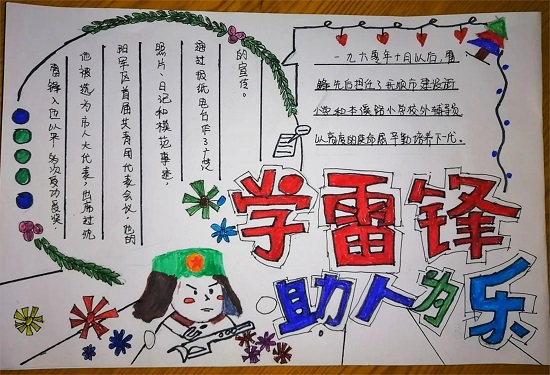 雷锋入伍以来，多次立功受奖，
他被选为市人大代表，出席过沈
阳军区首届共青团代表会议。他的
照片、日记和模范事迹，
通过报纸电台作了广泛
的宣传。
一九六零年十月以后，雷
锋先后担任了抚顺市建设街
小学和本溪路小学校外辅导员
以高度的使命感辛勤培养下一代。
学雷锋
助人为乐